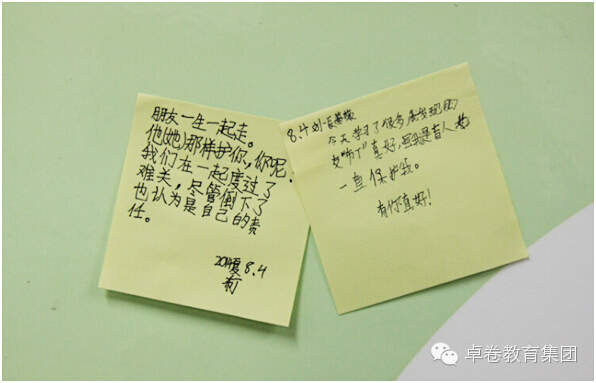 朋友一生一起走。
他(她)那样护你,你呢.
我们在一起度过了
难关,尽管倒下了
也认为是自己的责
任。
8.4
8.4 刘
今天学习了很多
真好,
一直保护我。
有你真好!
卓卷教育集团